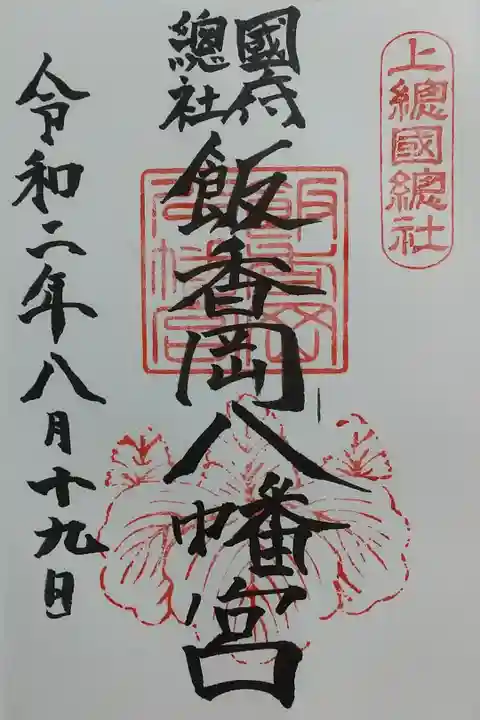 上總國總社
國府
總社
飯香岡八幡宮
飯香岡
八幡宮
令和二年八月十九日